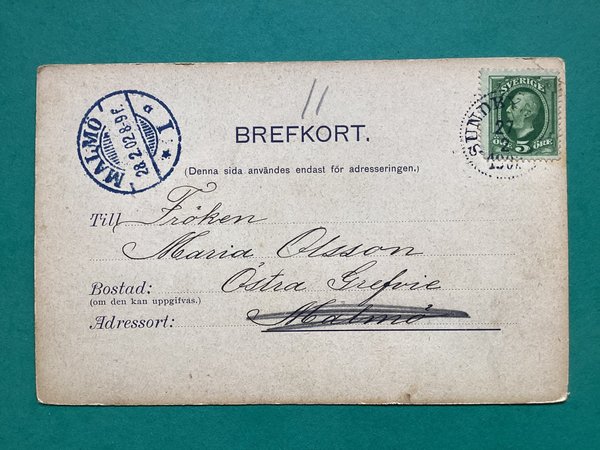 11
SVERIGE
5 ÖRE
MALMÖ
28.2.02.8-9 F.
1
BREFKORT.
(Denna sida användes endast för adresseringen.)
Till Fröken
Maria Olsson
Bostad: Östra Grefvie
(om den kan uppgifvas.)
Adressort: Malmö